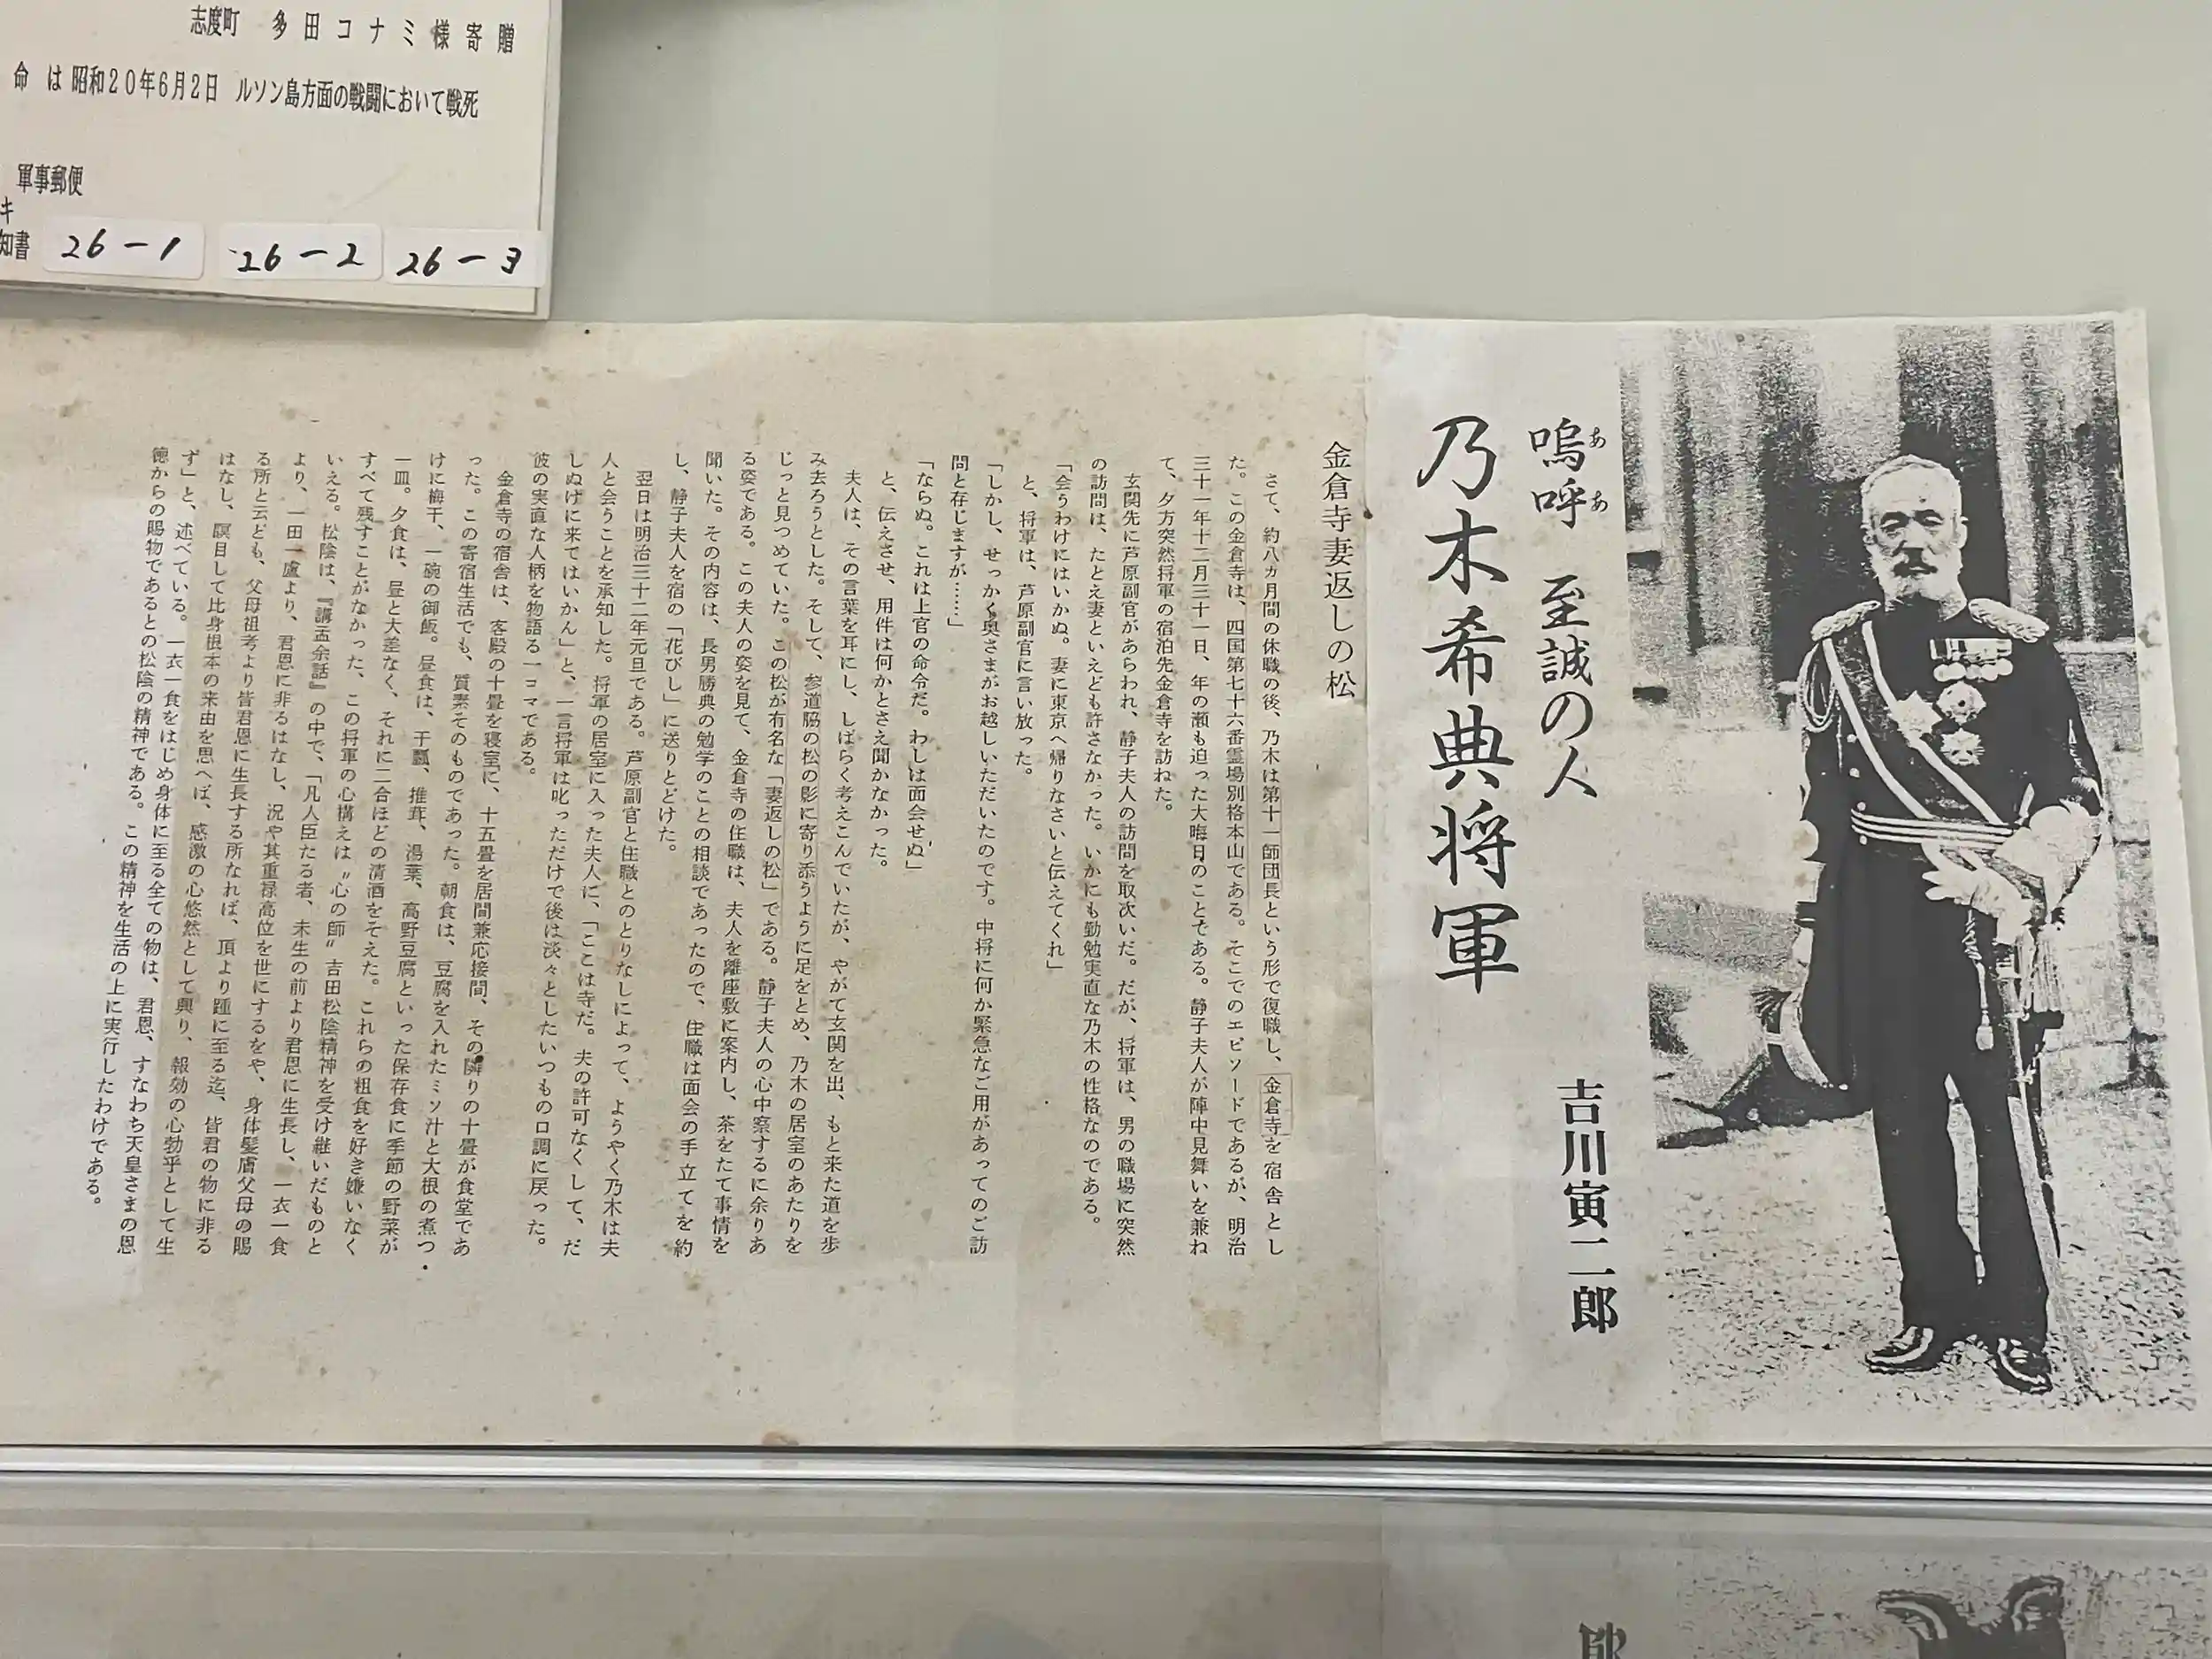 志度町 多田コナミ様寄贈
命は昭和20年6月2日 ルソン島方面の戦闘において戦死
軍事郵便
キ
知書
26-1
26-2
26-3
嗚呼 至誠の人
ああ
乃木希典将軍
吉川寅二郎
金倉寺妻返しの松
さて、約八カ月間の休職の後、乃木は第十一師団長という形で復職し、金倉寺を宿舎とし
た。この金倉寺は、四国第七十六番霊場別格本山である。そこでのエピソードであるが、明治
三十一年十二月三十一日、年の瀬も迫った大晦日のことである。静子夫人が陣中見舞いを兼ね
て、夕方突然将軍の宿泊先金倉寺を訪ねた。
玄関先に芦原副官があらわれ、静子夫人の訪問を取次いだ。だが、将軍は、男の職場に突然
の訪問は、たとえ妻といえども許さなかった。いかにも勤勉実直な乃木の性格なのである。
「会うわけにはいかぬ。妻に東京へ帰りなさいと伝えてくれ」
と、将軍は、芦原副官に言い放った。
「しかし、せっかく奥さまがお越しいただいたのです。中将に何か緊急なご用があってのご訪
問と存じますが……」
「ならぬ。これは上官の命令だ。わしは面会せぬ」
と、伝えさせ、用件は何かとさえ聞かなかった。
夫人は、その言葉を耳にし、しばらく考えこんでいたが、やがて玄関を出、もと来た道を歩
み去ろうとした。そして、参道脇の松の影に寄り添うように足をとめ、乃木の居室のあたりを
じっと見つめていた。この松が有名な「妻返しの松」である。静子夫人の心中察するに余りあ
る姿である。この夫人の姿を見て、金倉寺の住職は、夫人を離座敷に案内し、茶をたて事情を
聞いた。その内容は、長男勝典の勉学のことの相談であったので、住職は面会の手立てを約
し、静子夫人を宿の「花びし」に送りとどけた。
翌日は明治三十二年元旦である。芦原副官と住職とのとりなしによって、ようやく乃木は夫
人と会うことを承知した。将軍の居室に入った夫人に、「ここは寺だ。夫の許可なくして、だ
しぬけに来てはいかん」と、一言将軍は叱っただけで後は淡々としたいつもの口調に戻った。
彼の実直な人柄を物語る一コマである。
金倉寺の宿舎は、客殿の十畳を寝室に、十五畳を居間兼応接間、その隣りの十畳が食堂であ
った。この寄宿生活でも、質素そのものであった。朝食は、豆腐を入れたミソ汁と大根の煮つ
けに梅干、一碗の御飯。昼食は、干瓢、推茸、湯葉、高野豆腐といった保存食に季節の野菜が
一皿。夕食は、昼と大差なく、それに二合ほどの清酒をそえた。これらの粗食を好き嫌いなく
すべて残すことがなかった、この将軍の心構えは〝心の師〟吉田松陰精神を受け継いだものと
いえる。松陰は、『講孟余話』の中で、「凡人臣たる者、未生の前より君恩に生長し、一衣一食
より、一田一廬より、君恩に非るはなし、況や其重禄高位を世にするをや、身体髪膚父母の賜
る所と云ども、父母祖考より皆君恩に生長する所なれば、頂より踵に至る迄、皆君の物に非る
はなし、瞑目して比身根本の来由を思へば、感激の心悠然として興り、報効の心勃乎として生
ず」と、述べている。一衣一食をはじめ身体に至る全ての物は、君恩、すなわち天皇さまの恩
徳からの賜物であるとの松陰の精神である。この精神を生活の上に実行したわけである。